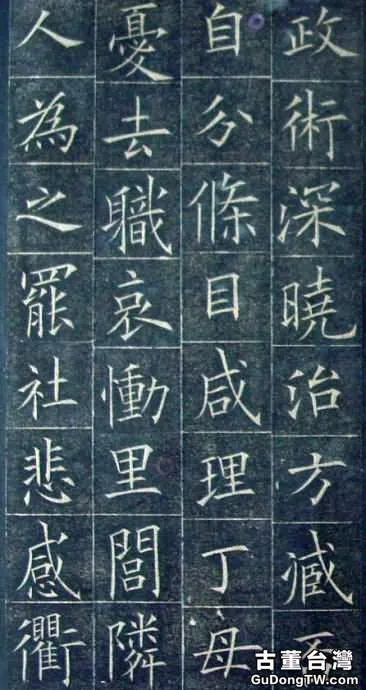 政術深曉治方臧否
自分條目咸理丁母
憂去職哀慟里閭隣
人為之罷社悲感衢
古董台灣
GuDongTW.com